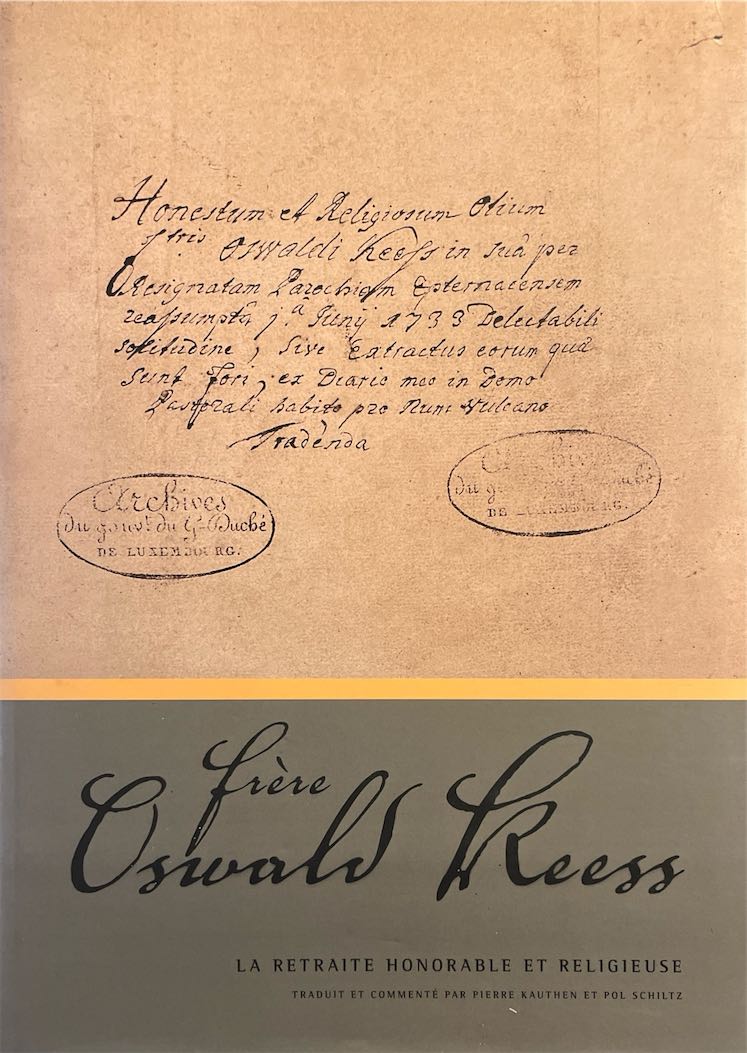 Honestum et Religiosum Otium
ffris Oswaldi Keess in suâ per
Resignatam Parochiam Epternacensem
reassumptâ j.ª Junij 1733 Delectabili
solitudine, sive Extractus eorum quæ
sunt fori, ex Diario meo in Domo
Pastorali habito pro Rumi Vulcano
Tradenda
Archives
du gouvt du Gd Duché
DE LUXEMBOURG.
Archives
du g Duché
DE LUXEMBOURG.
frère
Oswald Keess
LA RETRAITE HONORABLE ET RELIGIEUSE
TRADUIT ET COMMENTÉ PAR PIERRE KAUTHEN ET POL SCHILTZ